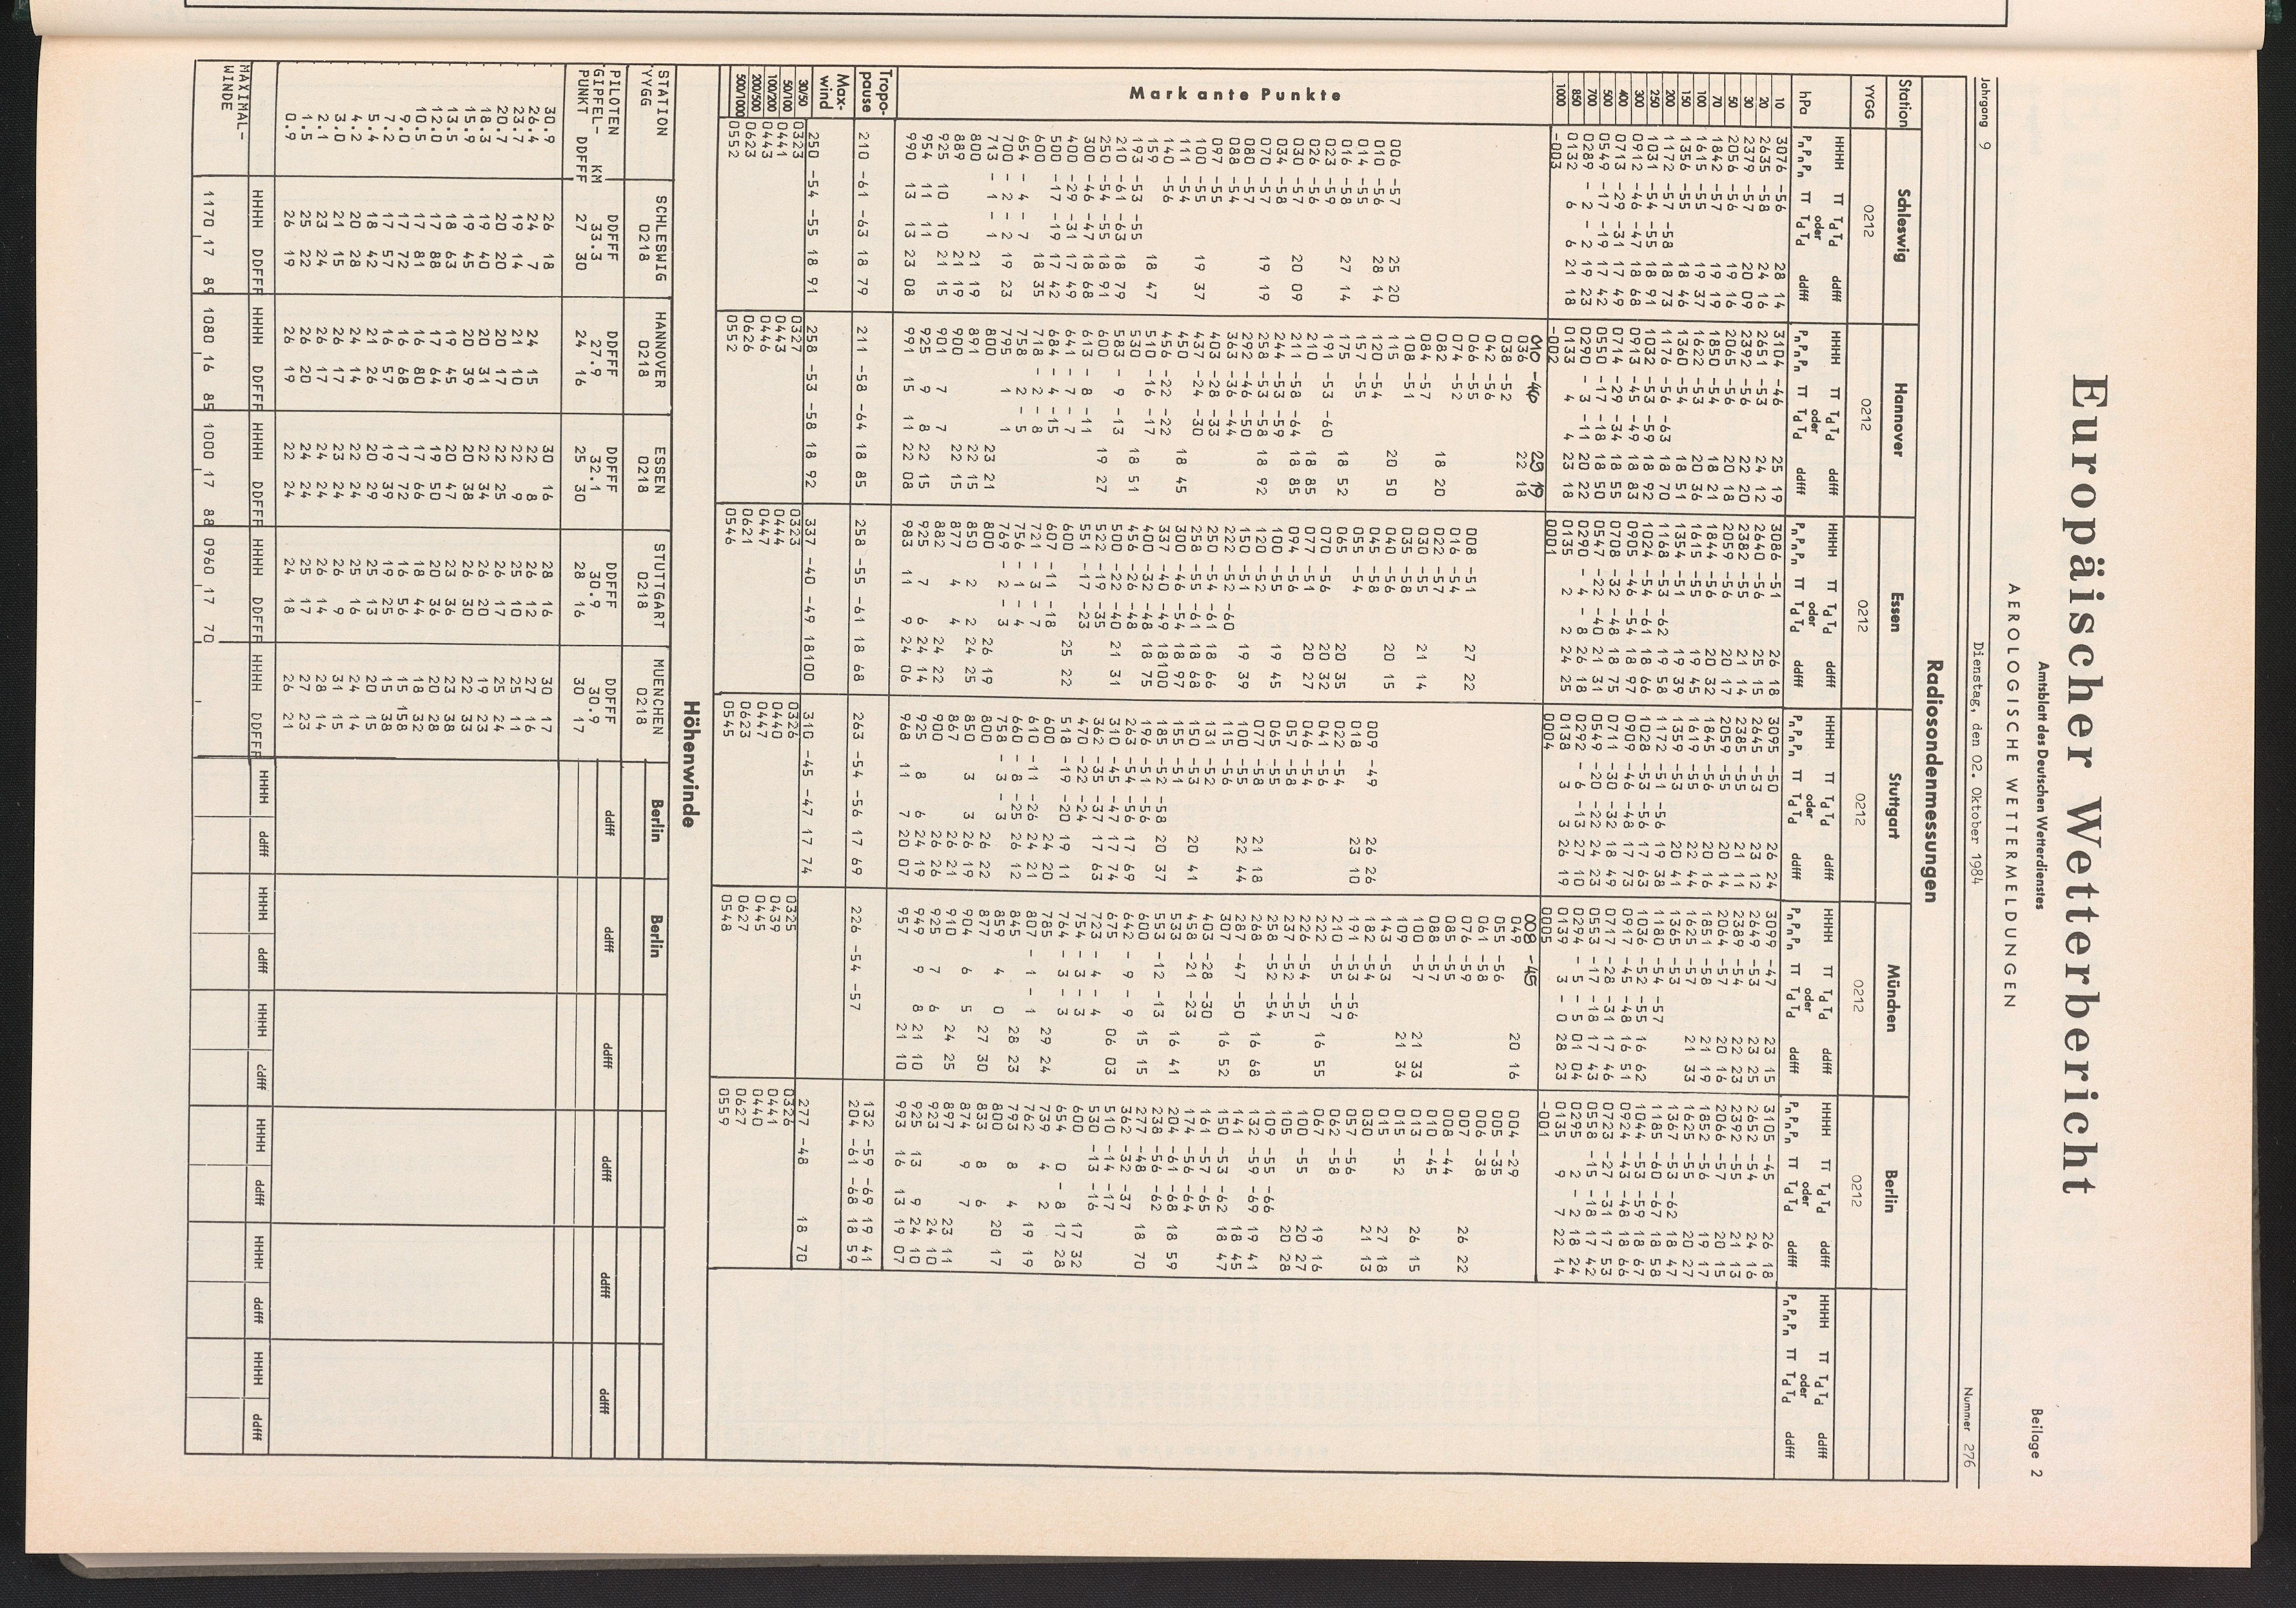 Europäischer Wetterbericht
Beilage 2
Amtsblatt des Deutschen Wetterdienstes
AEROLOGISCHE WETTERMELDUNGEN
Jahrgang 9 Dienstag, den 02. Oktober 1984 Nummer 276
Radiosondenmessungen
Station Schleswig Hannover Essen Stuttgart München Berlin
YYGG 0212 0212 0212 0212 0212 0212
hPa HHHH PnPnPn TT TdTd oder TT TdTd ddfff ddfff
10 3076 -56 28 14 3104 -46 25 19 3086 -51 26 18 3095 -50 26 24 3099 -47 23 15 3105 -45 26 18
20 2635 -58 24 16 2651 -53 24 12 2640 -56 25 15 2645 -53 23 12 2649 -53 23 25 2652 -54 24 16
30 2379 -57 20 09 2392 -56 22 20 2382 -55 21 14 2385 -55 21 11 2389 -54 22 23 2392 -55 21 13
50 2056 -56 19 16 2065 -56 20 18 2059 -56 20 17 2059 -55 20 14 2064 -57 20 16 2066 -57 20 15
70 1842 -57 19 19 1850 -54 18 21 1844 -56 20 32 1845 -56 20 16 1851 -58 21 19 1852 -56 19 17
100 1615 -55 19 37 1622 -53 20 36 1615 -55 19 45 1619 -55 22 44 1625 -57 21 33 1625 -55 20 27
150 1356 -55 18 46 1360 -54 18 51 1354 -51 19 39 1359 -53 20 41 1365 -53 1367 -53 -62 18 47
200 1172 -57 -58 18 73 1176 -56 -63 18 70 1168 -53 -62 19 58 1172 -51 -56 19 38 1180 -54 -57 1185 -60 -67 18 58
250 1031 -54 -55 18 91 1032 -53 -59 18 92 1024 -54 -61 18 66 1028 -53 -56 17 63 1036 -52 -55 16 62 1044 -53 -59 18 67
300 0912 -46 -47 18 68 0913 -45 -49 18 83 0905 -46 -54 18 97 0909 -46 -48 17 73 0917 -45 -48 16 51 0924 -43 -48 18 66
400 0713 -29 -31 17 49 0714 -29 -34 18 55 0708 -32 -48 18 75 0711 -30 -32 18 49 0717 -28 -31 17 46 0723 -27 -31 17 53
500 0549 -17 -19 17 42 0550 -17 -18 18 50 0547 -22 -40 21 31 0549 -20 -22 24 23 0553 -17 -18 17 43 0558 -15 -18 17 42
700 0289 - 2 - 2 19 23 0290 - 3 -11 20 22 0290 - 4 - 8 26 18 0292 - 6 -13 27 10 0294 - 5 - 5 01 04 0295 2 - 2 18 24
850 0132 6 6 21 18 0133 4 4 23 18 0135 2 2 24 25 0138 3 3 26 19 0139 3 - 0 28 23 0135 9 7 22 14
1000 -003 -002 0001 0004 0005 -001
Markante Punkte
006 -57 25 20
010 -56 28 14
014 -55
016 -58 27 14
023 -59
026 -56
030 -57 20 09
034 -58
070 -57 19 19
080 -57
088 -54
097 -55
100 -55 19 37
111 -54
140 -56
159 18 47
193 -53 -55
210 -61 -63 18 79
250 -54 -55 18 91
300 -46 -47 18 68
400 -29 -31 17 49
500 -17 -19 17 42
600 18 35
654 - 4 - 7
700 - 2 - 2 19 23
713 - 1 - 1
800 21 19
889 21 19
925 10 10 21 15
954 11 11
990 13 13 23 08
010 -46 25 19
036 22 18
038 -52
042 -56
066 -55
074 -52
082 18 20
084 -57
108 -51
115 20 50
120 -54
157 -55
175 18 52
191 -53 -60
210 18 85
211 -58 -64 18 85
244 -53 -59
258 -53 -58 18 92
292 -46 -50
363 -36 -44
403 -28 -33
437 -24 -30
450 18 45
456 -22 -22
510 -16 -17
530 18 51
583 - 9 -13
600 19 27
613 - 8 -11
641 - 7 - 7
684 - 4 -15
718 - 2 - 8
758 2 - 5
795 1 1
800 23 21
891 22 15
900 22 15
901 7 7
925 9 8 22 15
991 15 11 22 08
008 -51 27 22
016 -54
022 -57
030 -55 21 14
035 -58
040 -56 20 15
045 -58
055 -54
065 20 35
070 -56 20 32
077 -51 20 27
094 -56
100 -55 19 45
120 -52
150 -51 19 39
222 -52 -60
250 -54 -61 18 66
258 -55 -61 18 68
300 -46 -54 18 97
337 -40 -49 18100
400 -32 -48 18 75
456 -26 -48
500 -22 -40 21 31
522 -19 -35
551 -17 -23
600 25 22
607 -11 -18
721 - 3 - 7
756 - 1 - 4
769 - 2 - 3
800 26 19
850 2 2 24 25
877 4 4
882 24 22
925 7 6 24 14
983 11 9 24 06
009 -49 26 26
018 23 10
022 -54
041 -56
046 -54
057 -58
065 -55
077 -58 21 18
100 -55 22 44
115 -56
131 -52
150 -53 20 41
155 -51
185 -52 -58 20 37
196 -51 -56
263 -54 -56 17 69
310 -45 -47 17 74
362 -35 -37 17 63
470 -22 -24
518 -19 -20 19 11
600 24 20
610 -11 -26 24 21
660 - 8 -25 26 12
758 - 3 - 3
800 26 22
850 3 3 26 19
867 26 21
900 26 26
925 8 6 24 19
968 11 7 20 07
008 -45
049 20 16
055 -56
061 -58
076 -59
085 -55
088 -57
100 -57 21 33
109 21 34
143 -53
182 -54
191 -53 -56
210 -55 -57
222 16 55
226 -54 -57
237 -52 -55
258 -52 -54
268 16 68
287 -47 -50
307 16 52
403 -28 -30
458 -21 -23
533 16 41
553 -12 -13
600 15 15
642 - 9 - 9
675 06 03
723 - 4 - 4
754 - 3 - 3
764 - 3 - 3
785 29 24
807 - 1 - 1
845 28 23
859 4 0
877 27 30
904 6 5
910 24 25
925 7 6
949 9 8 21 10
957 21 10
004 -29
005 -35
006 -38
007 26 22
008 -44
010 -45
013 26 15
015 -52
015 27 18
030 21 13
057 -56
062 -58
067 19 16
100 -55 20 27
105 20 28
109 -55 -66
132 -59 -69 19 41
141 18 45
150 -53 -62 18 47
161 -57 -65
174 -56 -64
204 -61 -68 18 59
238 -56 -62
277 -48 18 70
362 -32 -37
510 -14 -17
530 -13 -16
600 17 32
654 0 - 8 17 28
739 4 2
762 19 19
793 8 4
800 20 17
833 8 6
874 9 7
897 23 11
923 24 10
925 13 9 24 10
993 16 13 19 07
Tropopause 210 -61 -63 18 79 211 -58 -64 18 85 258 -55 -61 18 68 263 -54 -56 17 69 226 -54 -57 132 -59 -69 19 41
204 -61 -68 18 59
Maxwind 250 -54 -55 18 91 258 -53 -58 18 92 337 -40 -49 18100 310 -45 -47 17 74 277 -48 18 70
30/50 0323 0327 0323 0326 0325 0326
50/100 0441 0443 0444 0440 0439 0441
100/200 0443 0446 0447 0447 0445 0440
200/500 0623 0626 0621 0623 0627 0627
500/1000 0552 0552 0546 0545 0548 0559
Höhenwinde
STATION SCHLESWIG HANNOVER ESSEN STUTTGART MUENCHEN Berlin Berlin
YYGG 0218 0218 0218 0218 0218
PILOTEN DDFFF DDFFF DDFFF DDFFF DDFFF ddfff ddfff ddfff ddfff ddfff ddfff
GIPFEL- KM 33.3 27.9 32.1 30.9 30.9
PUNKT DDFFF 27 30 24 16 25 30 28 16 30 17
30.9 26 18 30 16 28 16 30 17
26.4 24 7 24 15 22 8 26 12 27 16
23.7 19 14 21 10 22 9 25 10 25 11
20.7 20 20 20 17 22 25 26 17 25 24
18.3 19 40 20 31 22 34 26 20 19 23
15.9 19 45 20 39 20 38 26 30 22 33
13.5 18 63 19 45 20 47 23 36 23 38
12.0 17 88 17 64 19 50 20 36 20 28
10.5 17 81 16 80 17 66 18 44 18 32
9.0 17 72 16 68 17 72 16 56 15 158
7.2 17 57 16 57 19 39 19 25 15 38
5.4 18 42 21 26 20 29 25 13 20 15
4.2 20 28 24 14 22 24 25 16 24 14
3.0 21 15 26 17 23 24 26 9 31 15
2.1 23 24 26 17 24 24 26 14 28 14
1.5 25 22 26 20 24 24 25 17 27 23
0.9 26 19 26 19 22 24 24 18 26 21
HHHH DDFFF HHHH DDFFF HHHH DDFFF HHHH DDFFF HHHH DDFFF HHHH ddfff HHHH ddfff HHHH ddfff HHHH ddfff HHHH ddfff HHHH ddfff
MAXIMAL-WINDE 1170 17 89 1080 16 85 1000 17 88 0960 17 70